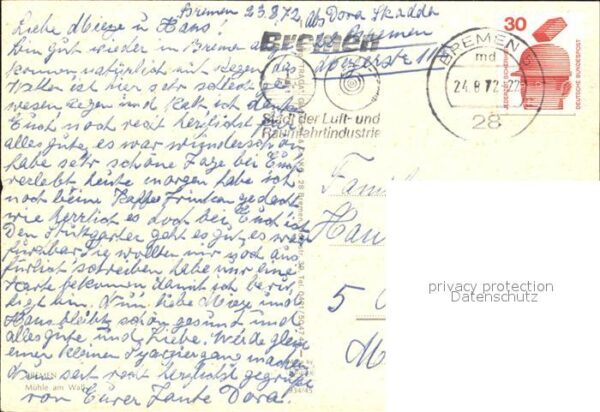 Bremen 23.8.72, Abs Dora
Liebe Mieze u Hans!
Bin gut wieder in Bremen
Bremen
kommen natürlich mit Regen das
Wetter ist hier sehr schlecht ge
wesen Regen und Kalt ich danke
Euch noch recht herzlichst für
alles gute, es war wunderschön
habe sehr schöne Tage bei Euch
verlebt, heute morgen habe ich
noch beim Kaffee Trinken gedacht
wie herrlich es doch bei Euch ist.
Den Stuttgarter geht es gut, es war
furchtbar wollten mir noch aus
führlich schreiben habe nur eine
Karte bekommen damit ich be
bin. Nun liebe Mieze und
Hans bleibt schön gesund und
alles gute und Liebe. Werde gleich
einen kleinen Spaziergang machen
seit recht herzlichst gegrüßt
von Eurer Tante Dora.
BREMEN
Mühle am Wall
Bremen
Stadt der Luft- und
Raumfahrtindustrie
BREMEN 5
md
24.8.72-22
28
30
JEDERZEIT SICHERHEIT
DEUTSCHE BUNDESPOST
Famil
Han
5
M
privacy protection
Datenschutz